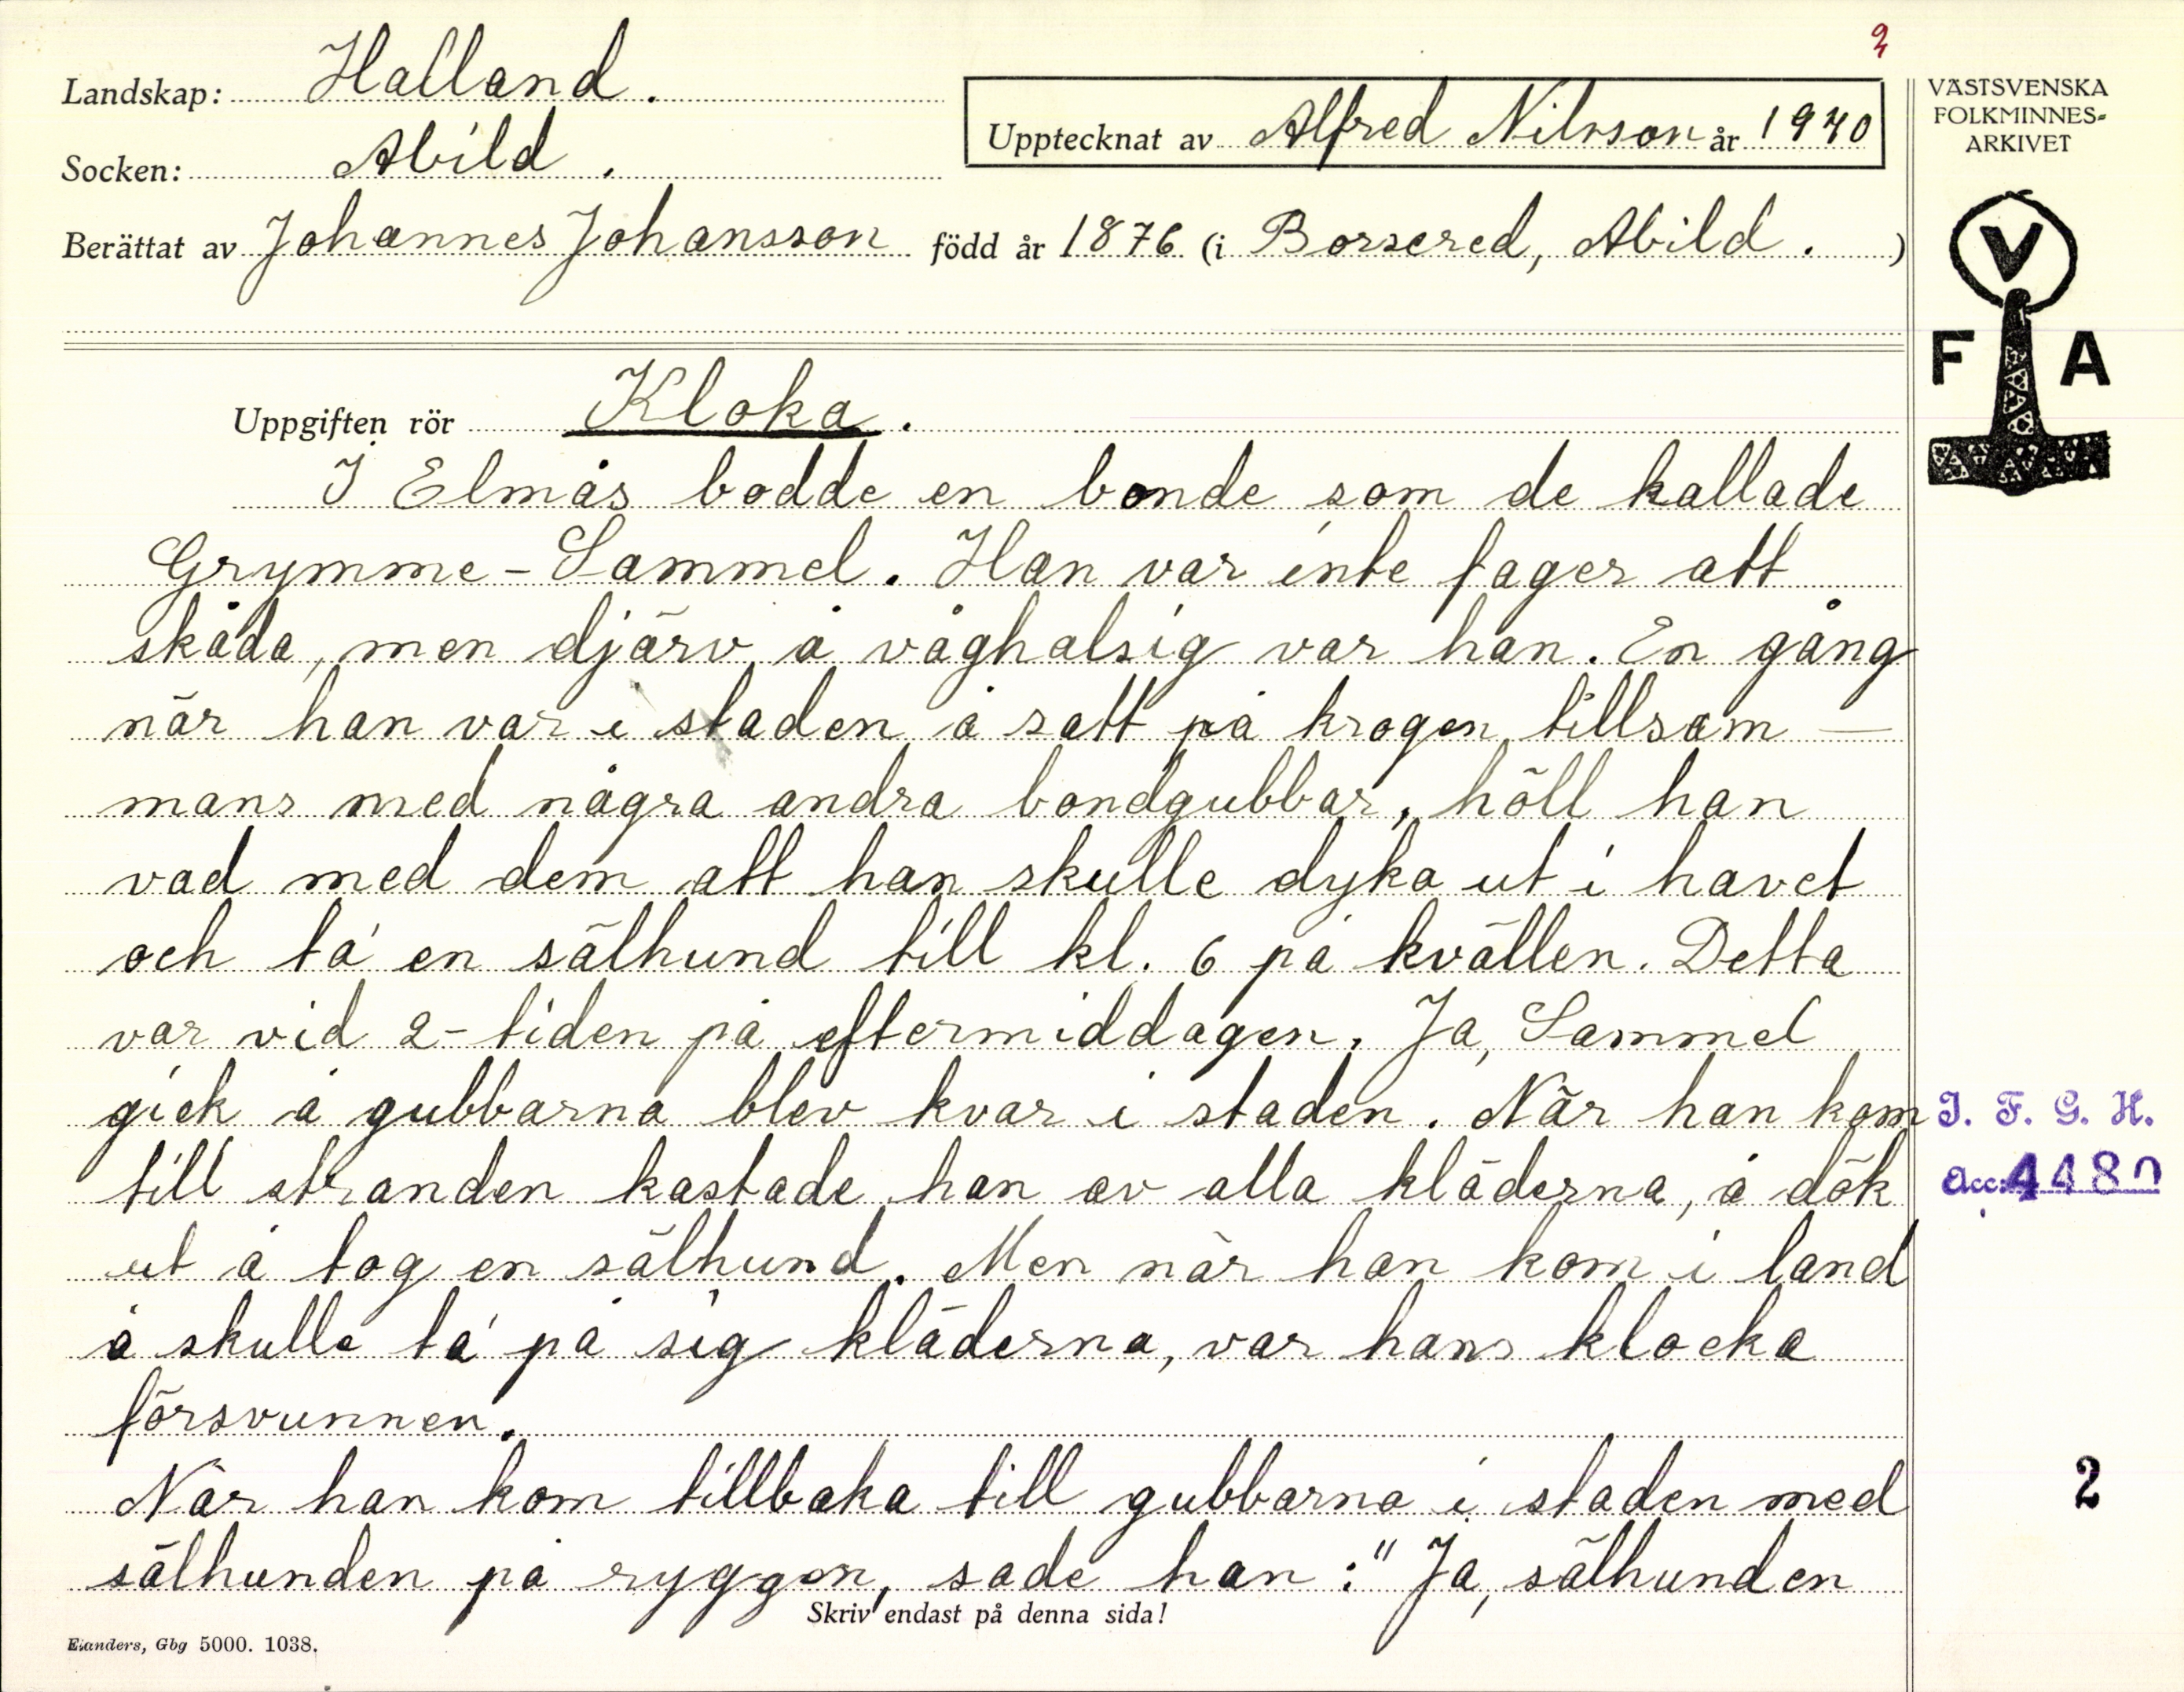 2
Landskap: Halland.
Socken: Abild.
Upptecknat av Alfred Nilsson år 1940
Berättat av Johannes Johansson född år 1876 (i Borsered, Abild. )
VÄSTSVENSKA
FOLKMINNES-
ARKIVET
V
F A
Uppgiften rör Kloka.
I Elmås bodde en bonde som de kallade
Grymme-Sammel. Han var inte fager att
skåda, men djärv å våghalsig var han. En gång
när han var i staden å satt på krogen tillsam-
mans med några andra bondgubbar, höll han
vad med dem att han skulle dyka ut i havet
och ta' en sälhund till kl. 6 på kvällen. Detta
var vid 2-tiden på eftermiddagen. Ja, Sammel
gick å gubbarna blev kvar i staden. När han kom
till stranden kastade han av alla kläderna, å dök
ut å tog en sälhund. Men när han kom i land
å skulle ta' på sig kläderna, var hans klocka
försvunnen.
När han kom tillbaka till gubbarna i staden med
sälhunden på ryggen, sade han: "Ja, sälhunden
I. F. G. H.
Acc: 4480
2
Skriv endast på denna sida!
Elanders, Gbg 5000. 1038.